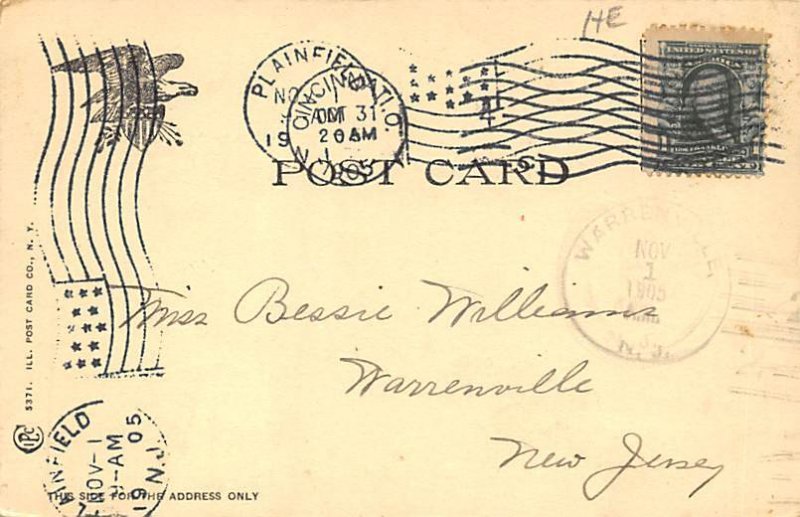 HE
PLAINFIELD
N.J.
CINCINNATI, O.
OCT 31
AM
1905
POST CARD
WARRENVILLE
NOV
1
1905
N.J.
Miss Bessie Williams
Warrenville
New Jersey
5371. ILL. POST CARD CO., N. Y.
NOV-1
-AM
1905
N.J.
THIS SIDE FOR THE ADDRESS ONLY